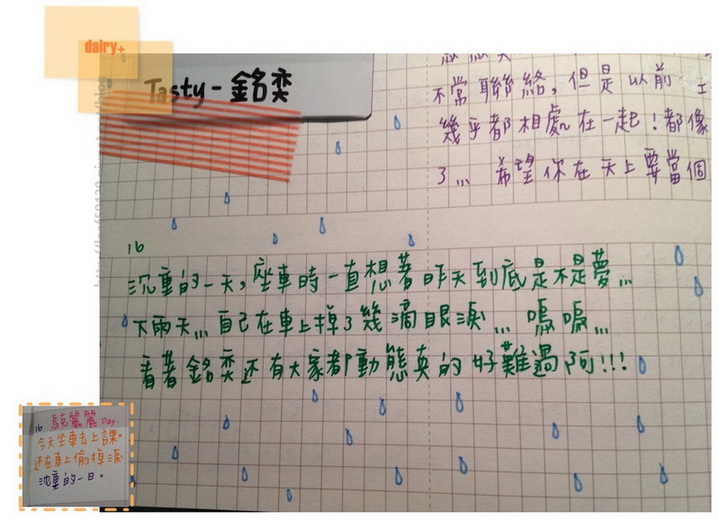 dairy+
Tasty-銘奕
不常聯絡,但是以前
幾乎都相處在一起!都像
了... 希望你在天上要當個
16
沉重的一天,座車時一直想著昨天到底是不是夢...
下雨天... 自己在車上掉了幾滴眼淚... 嗚嗚...
看著銘奕還有大家都動態真的好難過阿!!!
16 烏克麗麗 Day.
今天坐車去上課,
還在車上偷掉淚
沈重的一日。